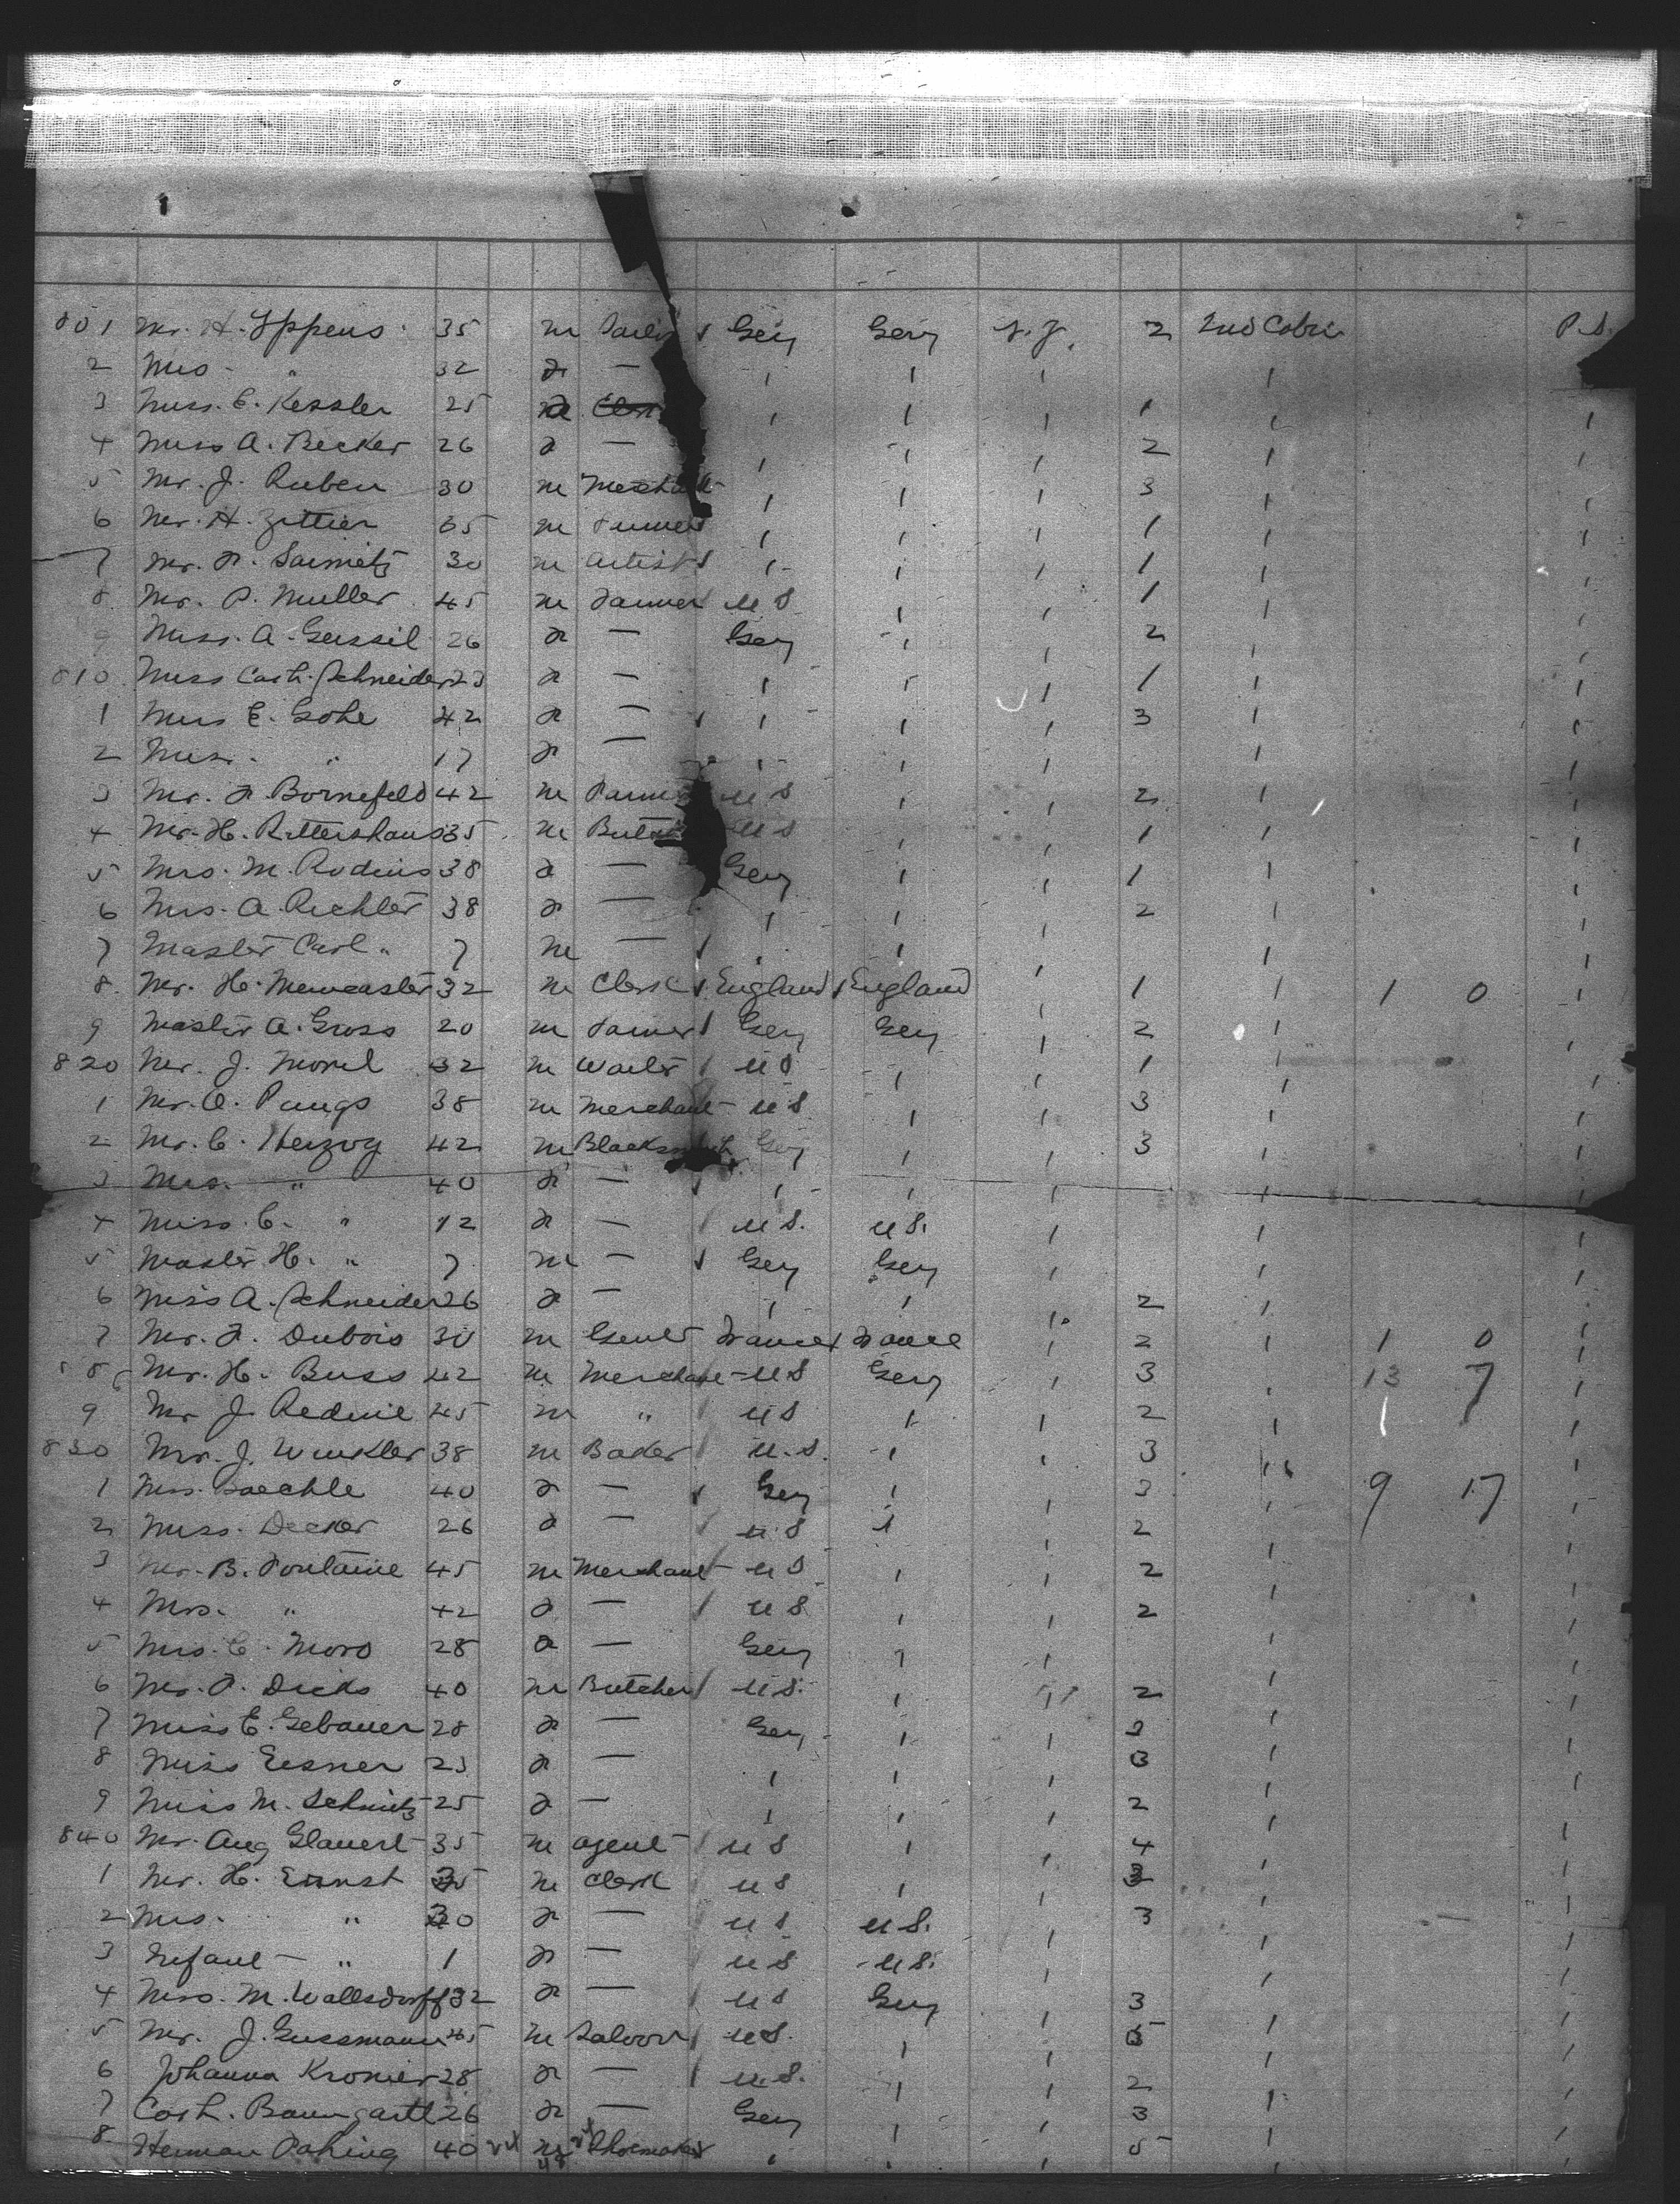 801 Mr. H. Ippens 35 m Gery Gery N.Y. 2 2nd Cabin P.D.
2 Mrs. " 32 f — ' ' ' '
3 Miss. E. Kessler 25 f ' ' ' 1 ' '
4 Miss A. Becker 26 f — ' ' ' 2 ' '
5 Mr. J. Ruben 30 m Merchant ' ' ' 3 ' '
6 Mr. H. Zittier 35 m ' ' ' 1 ' '
7 Mr. F. 30 m Artist ' ' ' 1 ' '
8 Mr. P. Muller 45 m Farmer U S ' ' 1 ' '
9 Miss. A. 26 f — Gery ' ' 2 ' '
810 Miss Cath. Schneider 23 f — ' ' ' 1 ' '
1 E. Gohe 42 f — ' ' ' 3 ' '
2 Miss. " 17 f — ' ' ' ' '
3 Mr. F. Bornefeld 42 m Farmer U S ' ' 2 ' '
4 Mr. H. Rittershaus 35 m U S ' ' 1 ' '
5 Mrs. M. Rodius 38 f — Gery ' ' 1 ' '
6 Mrs. A. Richter 38 f — ' ' ' 2 ' '
7 Master Carl " 7 m — ' ' ' ' '
8 Mr. H. Mewcaster 32 m Clerk England England ' 1 ' 1 0 '
9 Master A. Gross 20 m Farmer Gery Gery ' 2 ' '
820 Mr. J. Morel 32 m Waiter U S ' ' 1 ' '
1 Mr. O. Pangs 38 m Merchant U S ' ' 3 ' '
2 Mr. C. Herzog 42 m Blacksmith Gery ' ' 3 ' '
3 Mrs. " 40 f — ' ' ' ' '
4 Miss. C. " 12 f — U S. U S. ' ' '
5 Master H. " 7 m — Gery Gery ' ' '
6 Miss A. Schneider 26 f — ' ' ' 2 ' '
7 Mr. F. Dubois 30 m Gent France France ' 2 ' 1 0 '
8 Mr. H. Buss 42 m Merchant U S Gery ' 3 ' 13 7 '
9 Mr J. Redwie 45 m " U S ' ' 2 ' 1 '
830 Mr. J. Winkler 38 m Baker U. S. ' ' 3 ' '
1 Baechle 40 f — Gery ' ' 3 ' 9 17 '
2 Miss. Decker 26 f — U. S ' ' 2 ' '
3 Mr. B. Fontaine 45 m Merchant U S ' ' 2 ' '
4 Mrs. " 42 f — U S ' ' 2 ' '
5 Mrs. C. Moro 28 f — Gery ' ' ' '
6 Mr. F. Dicks 40 m Butcher U S. ' ' 2 ' '
7 Miss E. Gebauer 28 f — Gery ' ' 2 ' '
8 Miss Eesner 23 f — ' ' ' 3 ' '
9 Miss M. Schmitz 25 f — ' ' ' 2 ' '
840 Mr. Aug Glauert 35 m agent U S ' ' 4 ' '
1 Mr. H. Ernst 35 m Clerk U S ' ' 3 ' '
2 Mrs. " 30 f — U S U S. ' 3 ' '
3 Infant — " 1 f — U S U S. ' ' '
4 Mrs. M. Wallsdorff 32 f — U S Gery ' 3 ' '
5 Mr. J. Gussmann 45 m Saloon U S. ' ' ' '
6 Johanna Kronier 28 f — U. S. ' ' 2 ' '
7 Cath. Baumgartl 26 f — Gery ' ' 3 ' '
8 Herman Pahing 40 24 m 24 Shoemaker ' ' ' 5 ' '
48